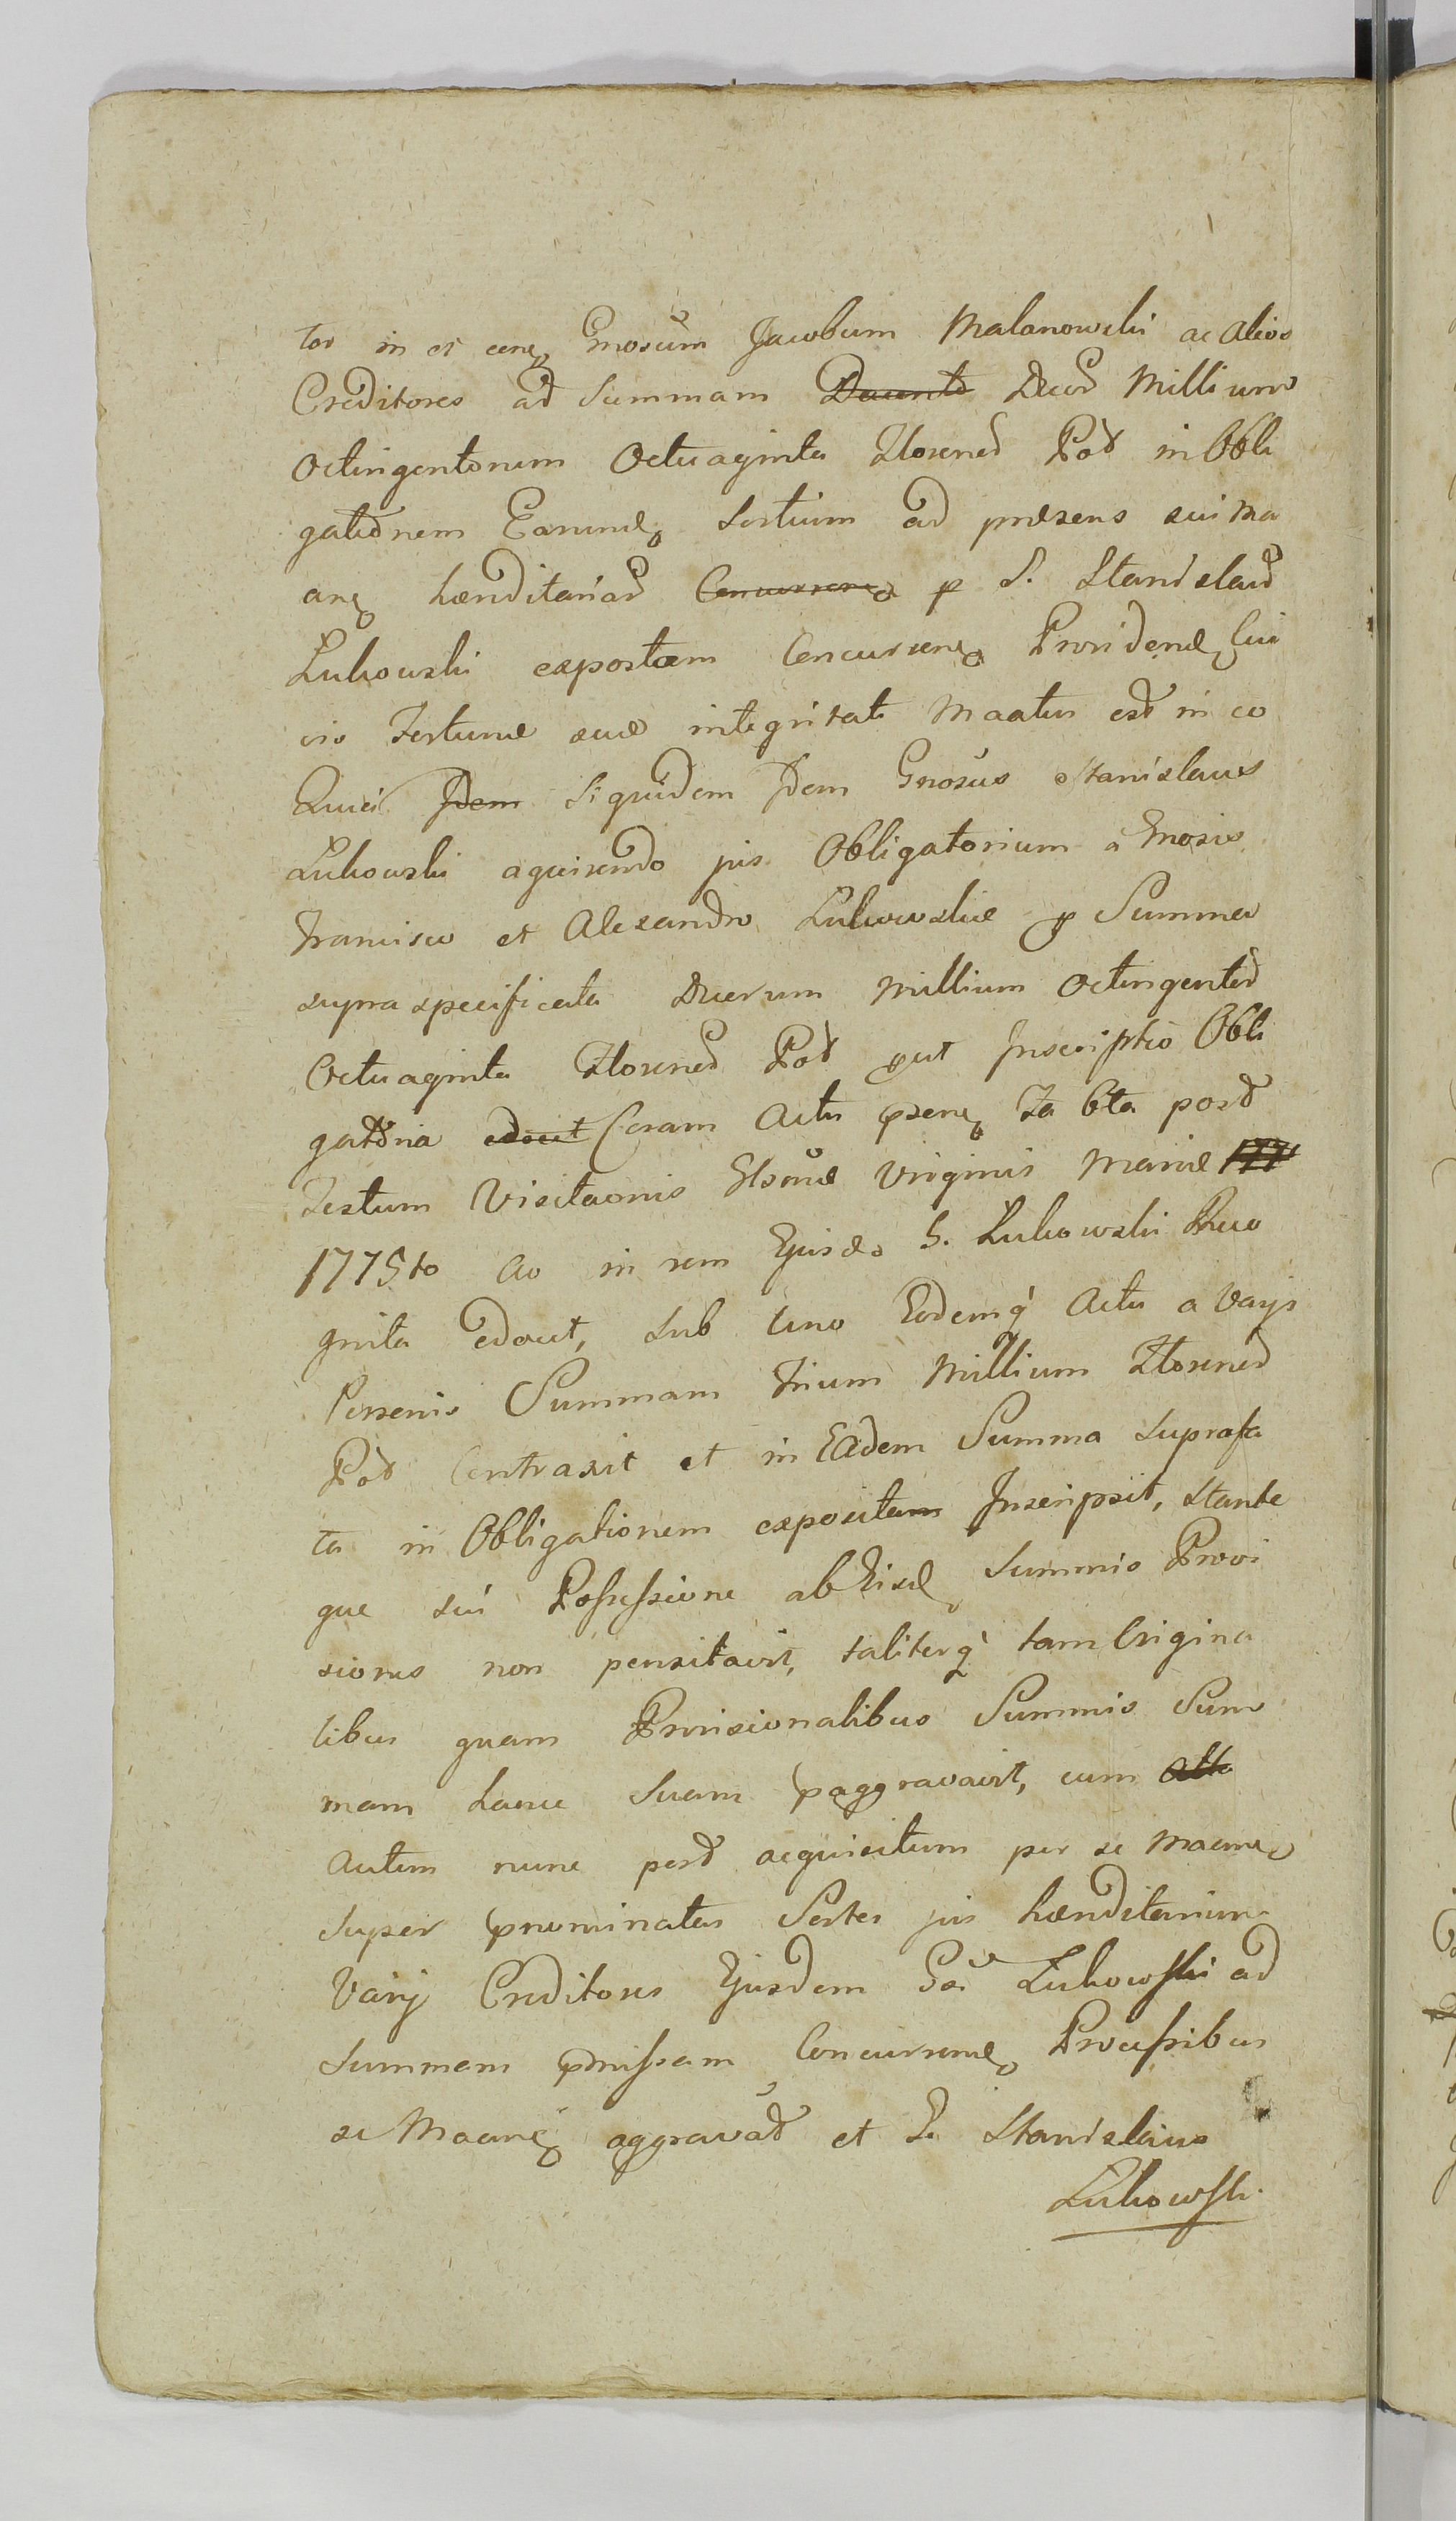 tor in et cene Gnosum Jacobum Malanowski ac Alios
Creditores ad Summam Duorum Millium
Octingentorum Octuaginta Floren Pol in Obli
gationem Earund Sortium ad præsens sui Ma
ane hæreditariar p S. Stanislau
Lukowski expositam Concursene Providend Cui
vis Fortunæ suæ integritati Maatur est in eo
Quia Idem Siquidem Idem Gnosus Stanislaus
Lukowski aquirendo jus Obligatorium a Gnosis
Francisco et Alexandro Lukowskie p Summa
supra specificata Duorum Millium Octingento
Octuaginta Floren Pol put Inscriptio Obli
gatoria edocet Coram Actis psene Fa 6ta post
Festum Visitaonis Glosæ Virginis Mariæ 177
1775to Ao in rem Ejusd S. Lukowski Reco
gnita edocet, Sub uno Eodemq Actu a Varys
Personis Summam Trium Millium Floren
Pol Contraxit et in Eadem Summa Suprafa
ta in Obligationem expositam Inscripsit, Stante
que sui Possessione ab Eisd Summis Provi
siones non pensitavit, taliterq tam Origina
libus quam Provisionalibus Summis Sum
mam hancce Suam paggravavit, cum Alto
autem nunc post acquisitum per se Maene
Super pnominatas Sortes jus hæreditarium
Varij Creditores Ejusdem Gsi Lukowski ad
Summam pmissam Concursend Processibus
se Maene aggravat et S. Stanislaus
Lukowski